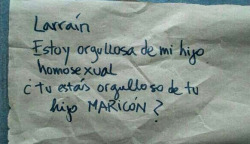 Larraín
Estoy orgullosa de mi hijo
homosexual
¿Tu estás orgulloso de tu
hijo MARICÓN?